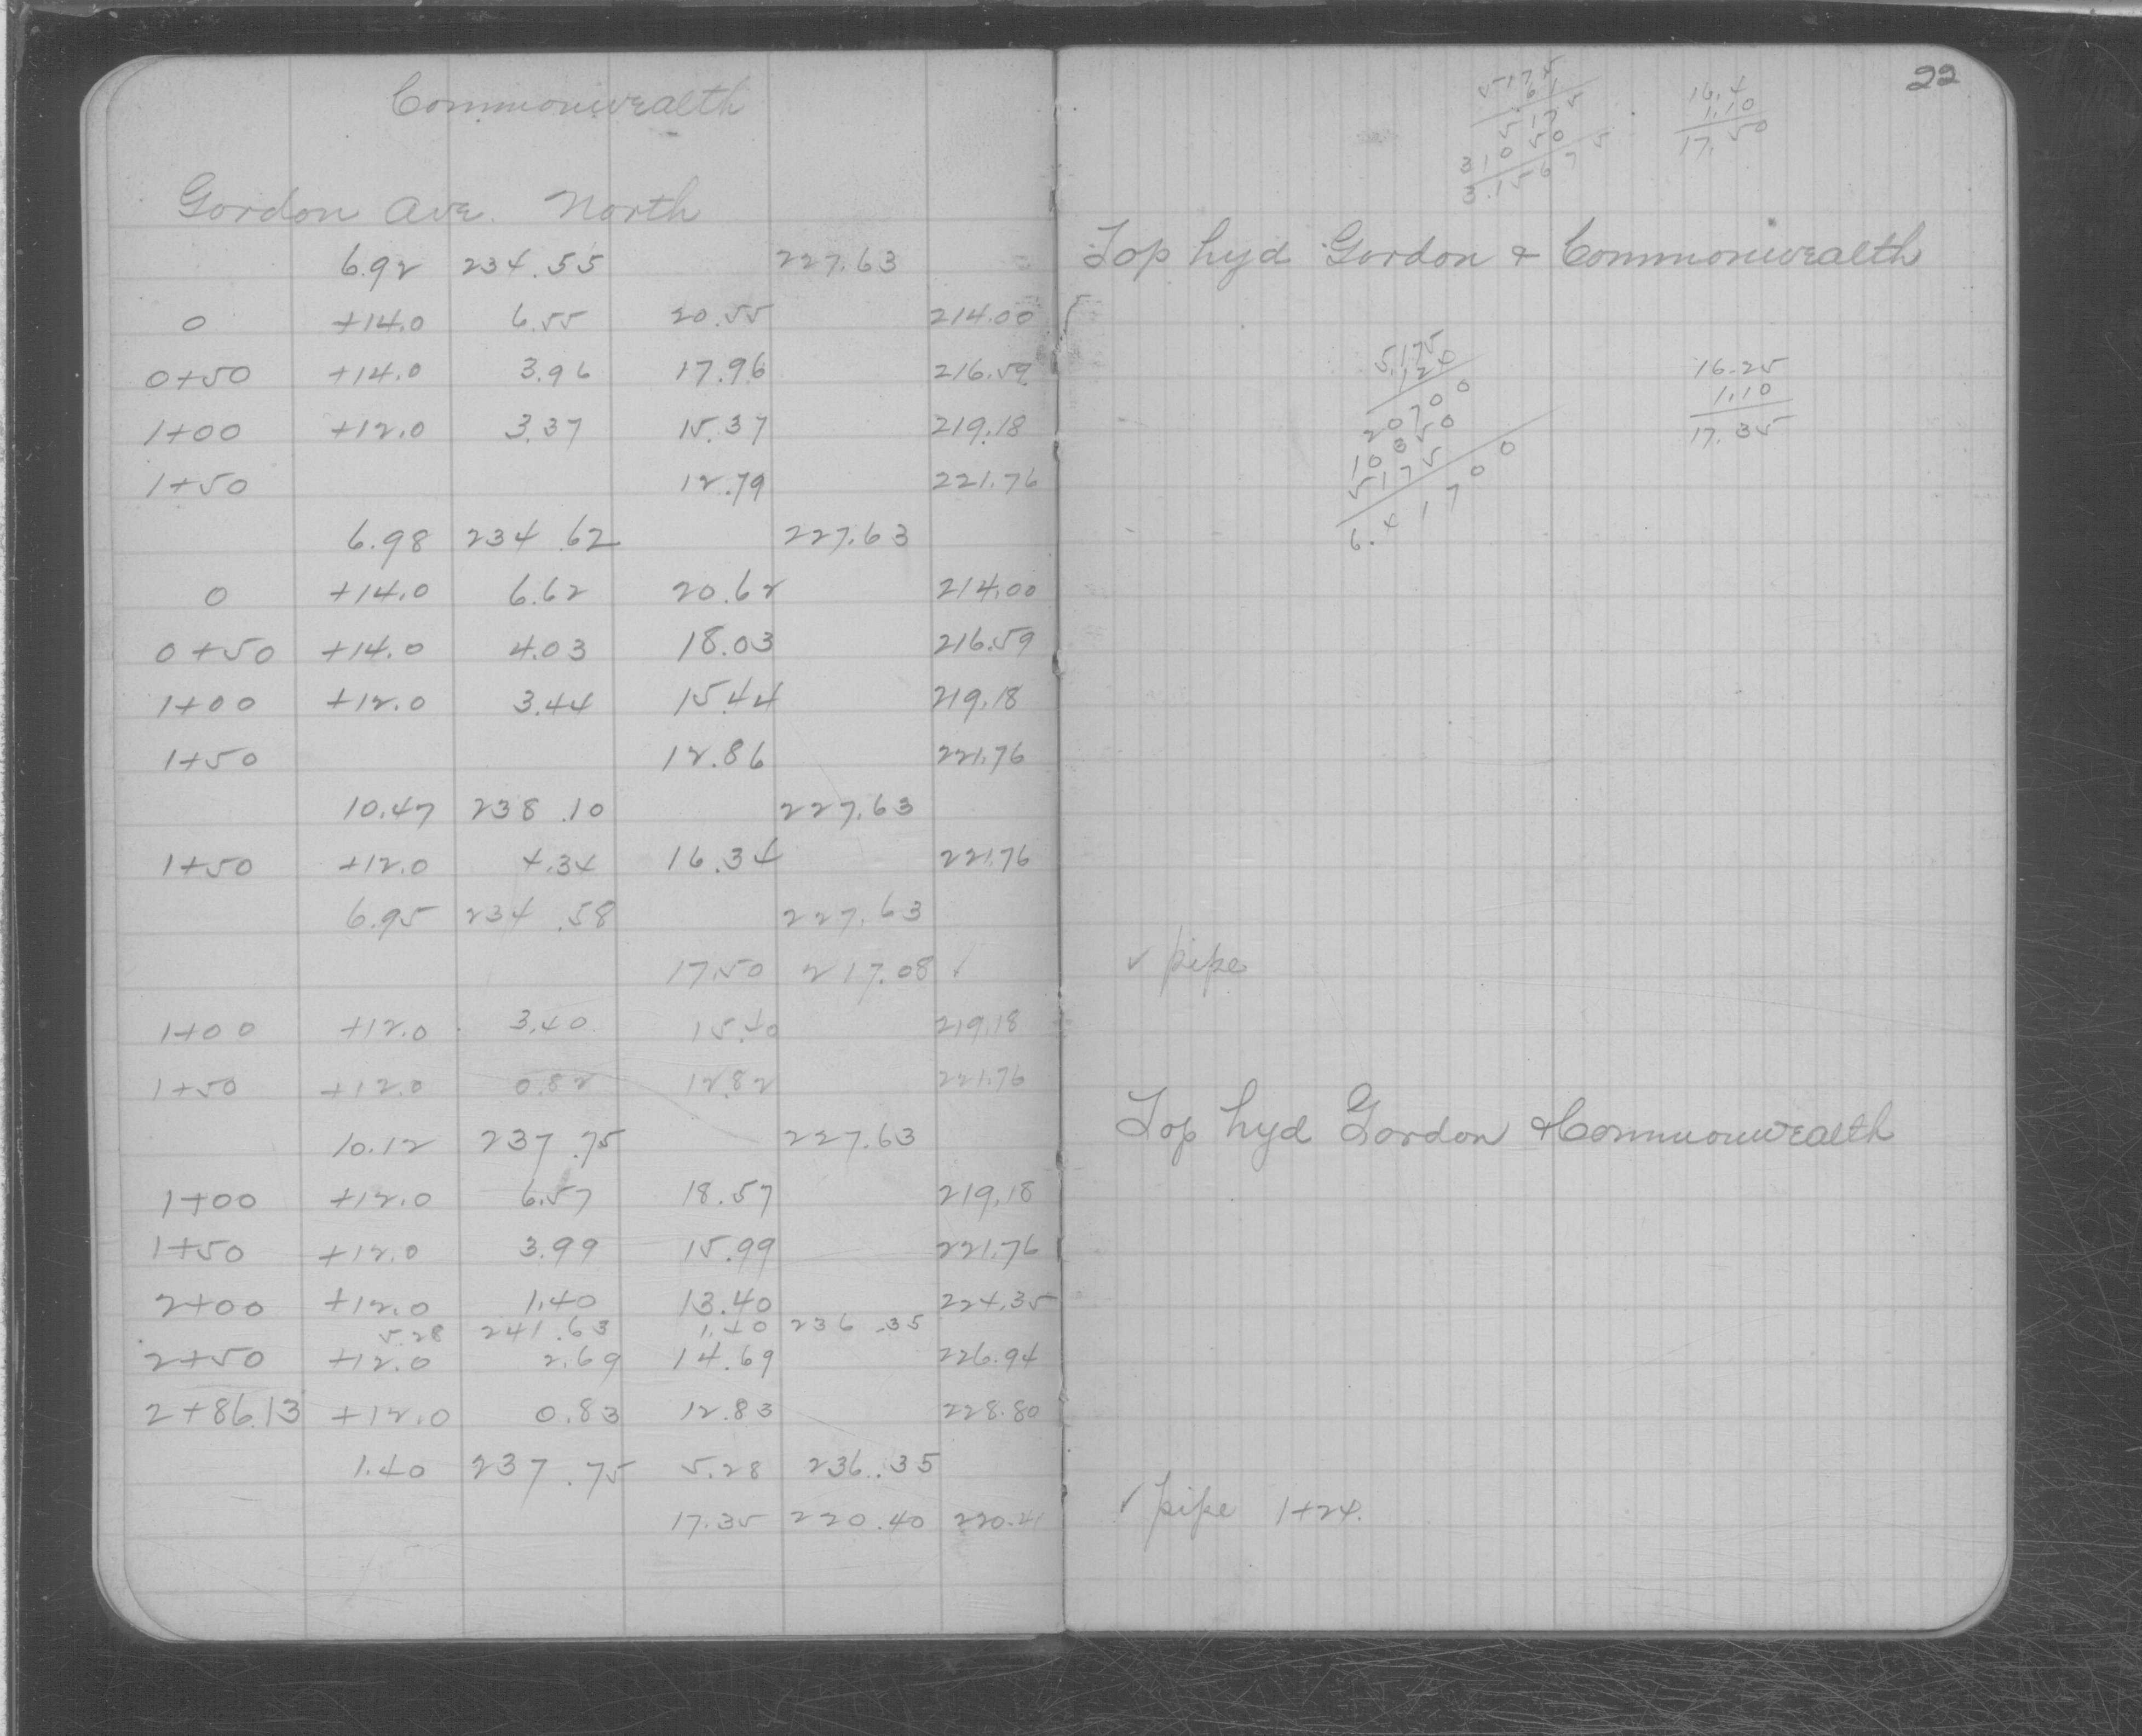 Commonwealth
Gordon Ave. North
6.92 234.55 227.63
0 +14.0 6.55 20.55 214.00
0+50 +14.0 3.96 17.96 216.59
1+00 +12.0 3.37 15.37 219.18
1+50 12.79 221.76
6.98 234.62 227.63
0 +14.0 6.62 20.62 214.00
0+50 +14.0 4.03 18.03 216.59
1+00 +12.0 3.44 15.44 219.18
1+50 12.86 221.76
10.47 238.10 227.63
1+50 +12.0 4.34 16.34 221.76
6.95 234.58 227.63
17.50 217.08 ✓
1+00 +12.0 3.40 15.40 219.18
1+50 +12.0 0.82 12.82 221.76
10.12 237.75 227.63
1+00 +12.0 6.57 18.57 219.18
1+50 +12.0 3.99 15.99 221.76
2+00 +12.0 1.40 13.40 224.35
5.28 241.63 1.40 236.35
2+50 +12.0 2.69 14.69 226.94
2+86.13 +12.0 0.83 12.83 228.80
1.40 237.75 5.28 236.35
17.35 220.40 220.41
22
5175
61
5175
31050
3.15675
16.4
1.10
17.50
Top hyd Gordon & Commonwealth
5.175
124
20700
10350
5175
6.41700
16.25
1.10
17.35
✓ pipe
Top hyd Gordon & Commonwealth
✓ pipe 1+24.